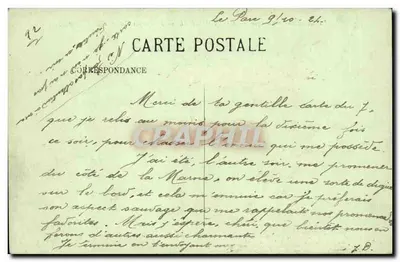 le Parc 9/10 - 24.
CARTE POSTALE
CORRESPONDANCE
Merci de ta gentille carte du 7,
que je relis au moins pour la dixième fois
ce soir, pour chasser l'ennui qui me possède.
J'ai été, l'autre soir, me promener
du côté de la Marne, on élève une sorte de digue
sur le bord, et cela m'ennuie car je préférais
son aspect sauvage que me rappelait nos promenades
favorites. Mais j'espère, chéri, que bientôt nous en
ferons d'autres aussi charmantes.
Je termine en t'embrassant
J.B.
CPARAMA